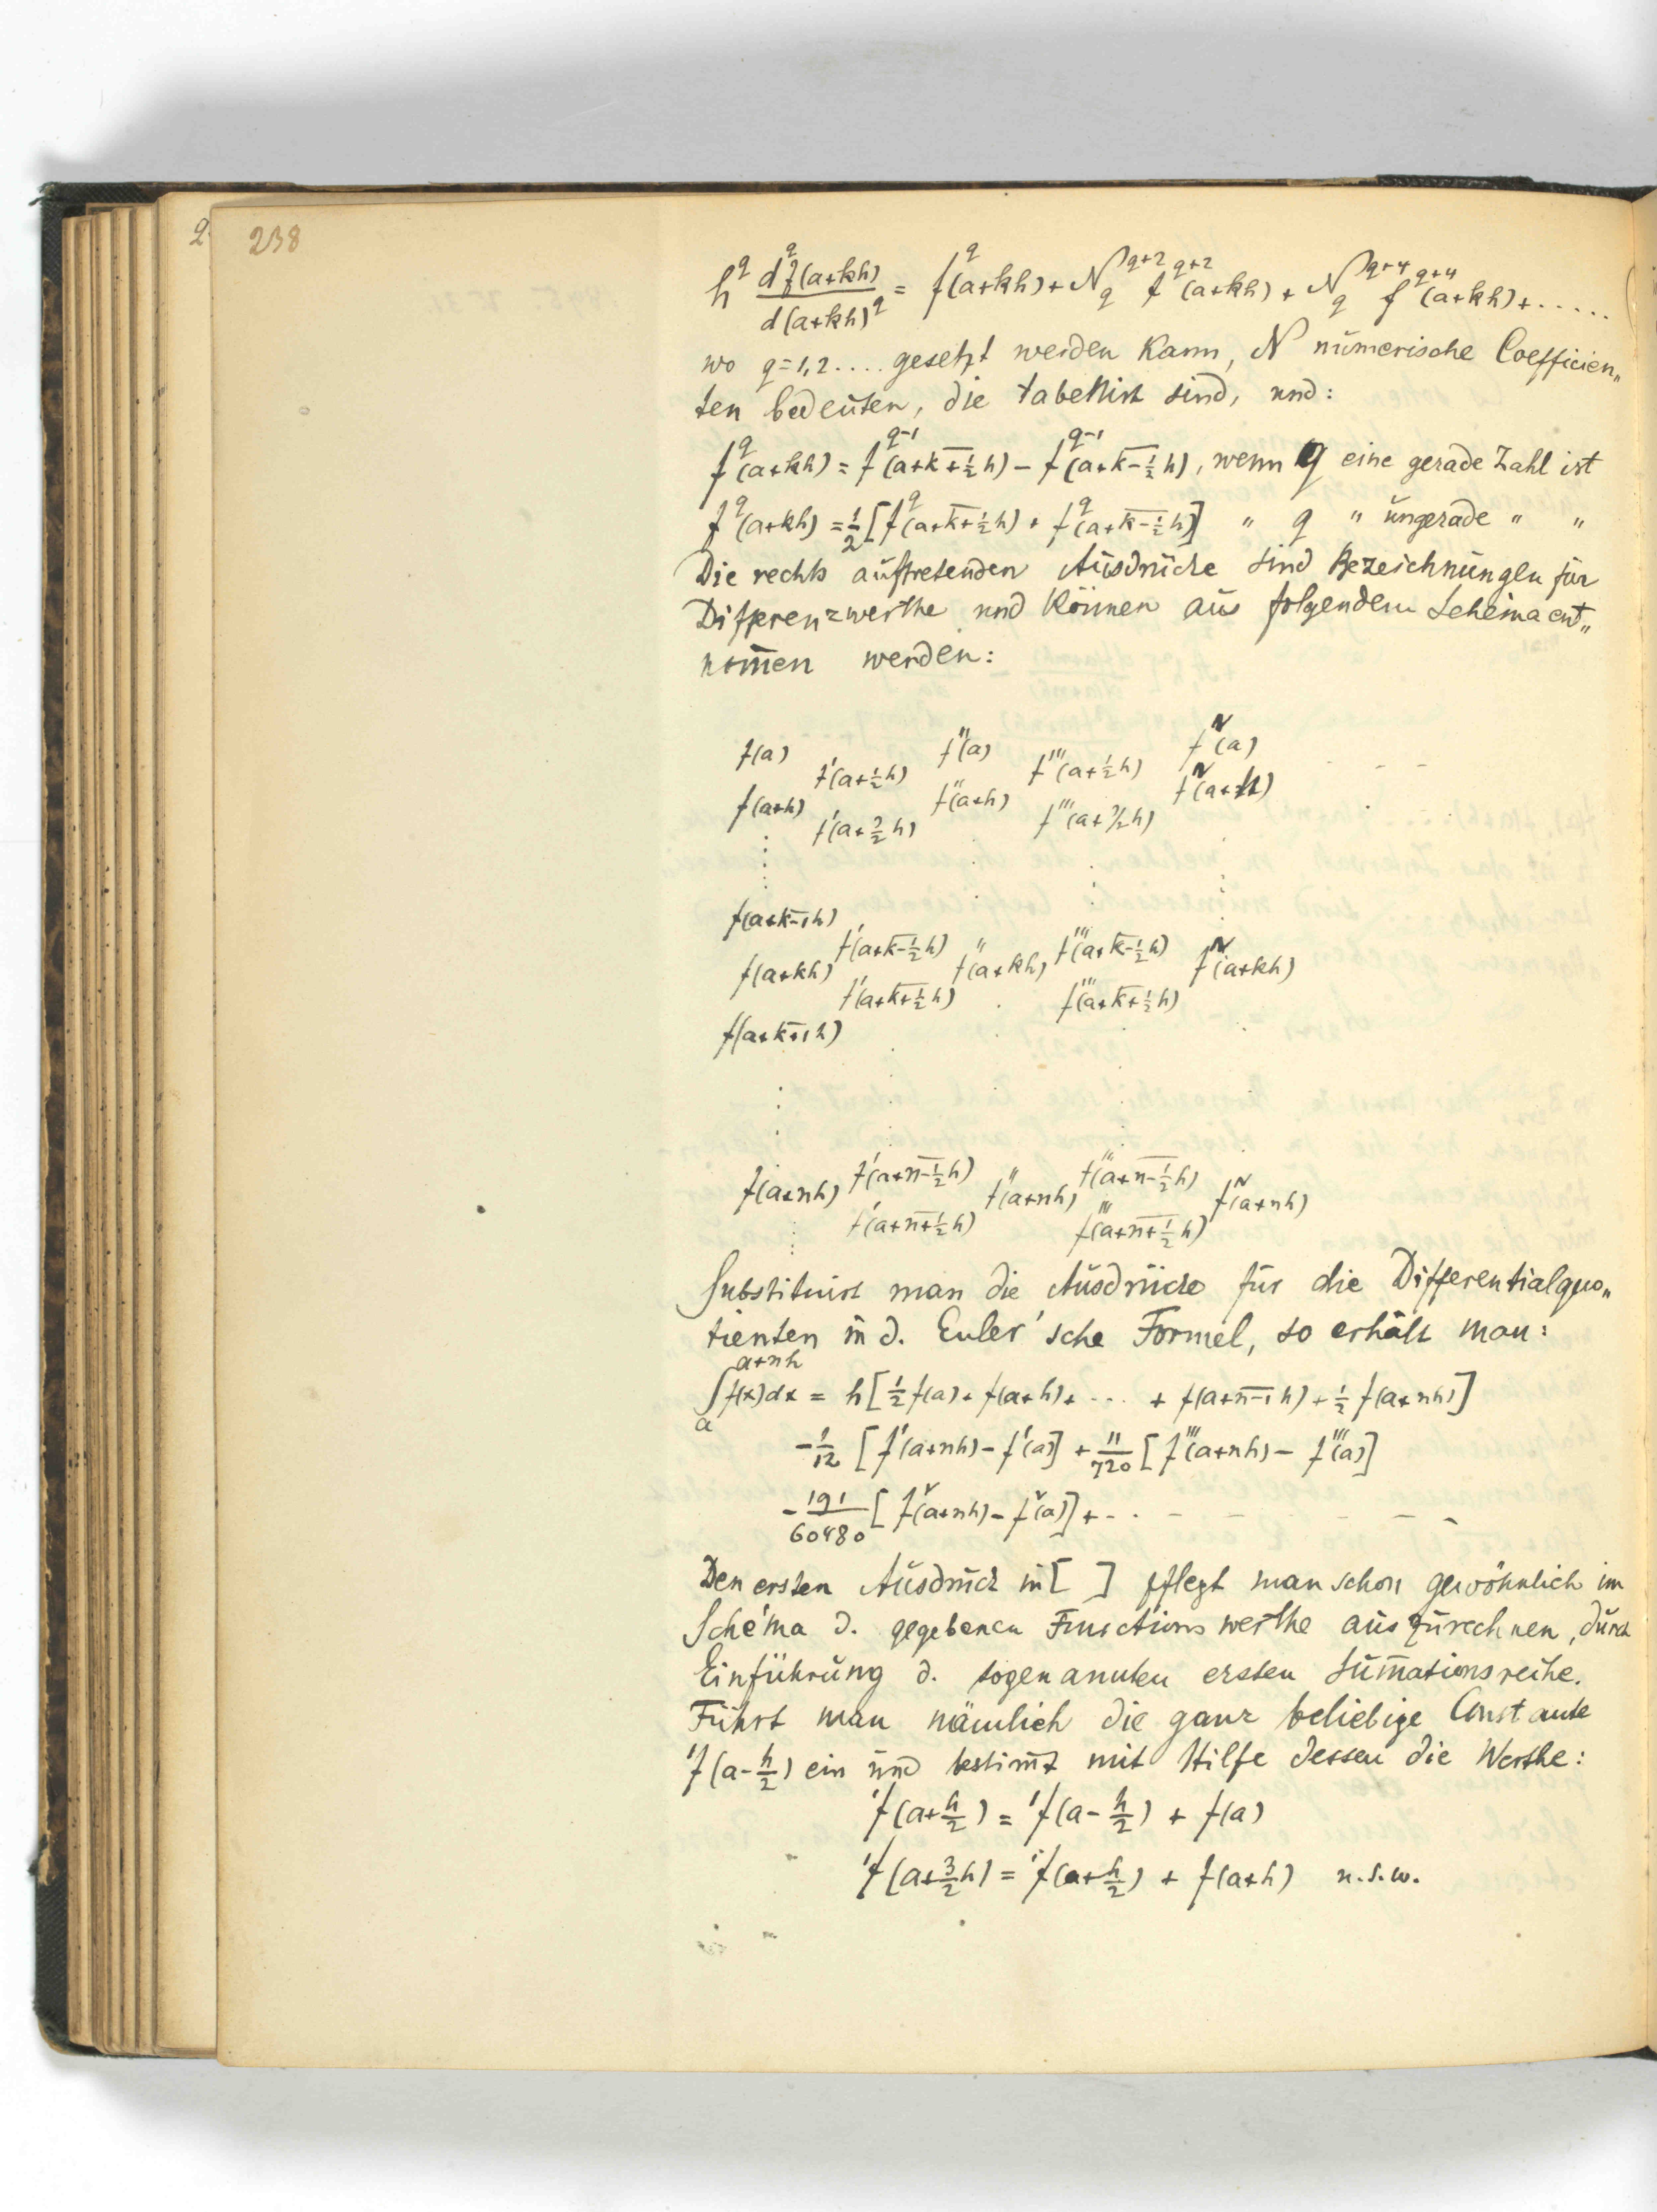 2
238
h^q d^q f(a+kh) / d(a+kh)^q = f^q(a+kh) + N_q^{q+2} f^{q+2}(a+kh) + N_q^{q+4} f^{q+4}(a+kh) + .....
wo q=1,2.... gesetzt werden kann, N numerische Coefficien„
ten bedeuten, die tabellirt sind, und:
f^q(a+kh) = f^{q-1}(a+k̅+̅½̅h) − f^{q-1}(a+k̅-̅½̅h), wenn q eine gerade Zahl ist
f^q(a+kh) = ½[f^q(a+k̅+̅½̅h) + f^q(a+k̅-̅½̅h)] " q " ungerade " "
Die rechts auftretenden Ausdrücke sind Bezeichnungen für
Differenzwerthe und können aus folgendem Schema ent„
nom̅en werden:
f(a) f''(a) f^{IV}(a)
f'(a+½h) f'''(a+½h) - - -
f(a+h) f''(a+h) f^{IV}(a+h)
f'(a+3/2 h) f'''(a+3/2 h)
f(a+k̅-̅1̅h)
f'(a+k̅-̅½̅h) f'''(a+k̅-̅½̅h)
f(a+kh) f''(a+kh) f^{IV}(a+kh)
f'(a+k̅+̅½̅h) f'''(a+k̅+̅½̅h)
f(a+k̅+̅1̅h)
f'(a+n̅-̅½̅h) f'''(a+n̅-̅½̅h)
f(a+nh) f''(a+nh) f^{IV}(a+nh)
f'(a+n̅+̅½̅h) f'''(a+n̅+̅½̅h)
Substituirt man die Ausdrücke für die Differentialquo„
tienten in d. Euler'sche Formel, so erhält man:
∫_a^{a+nh} f(x)dx = h[½f(a) + f(a+h) + ... + f(a+n̅-̅1̅h) + ½f(a+nh)]
− 1/12 [f'(a+nh) − f'(a)] + 11/720 [f'''(a+nh) − f'''(a)]
− 191/60480 [f^V(a+nh) − f^V(a)] + - . - - - - - -
Den ersten Ausdruck in [ ] pflegt man schon gewöhnlich im
Schema d. gegebenen Functionswerthe auszurechnen, durch
Einführung d. sogenannten ersten Sum̅ationsreihe.
Führt man nämlich die ganz beliebige Constante
'f(a-h/2) ein und bestim̅t mit Hilfe dessen die Werthe:
'f(a+h/2) = 'f(a-h/2) + f(a)
'f(a+3/2 h) = 'f(a+h/2) + f(a+h) u.s.w.